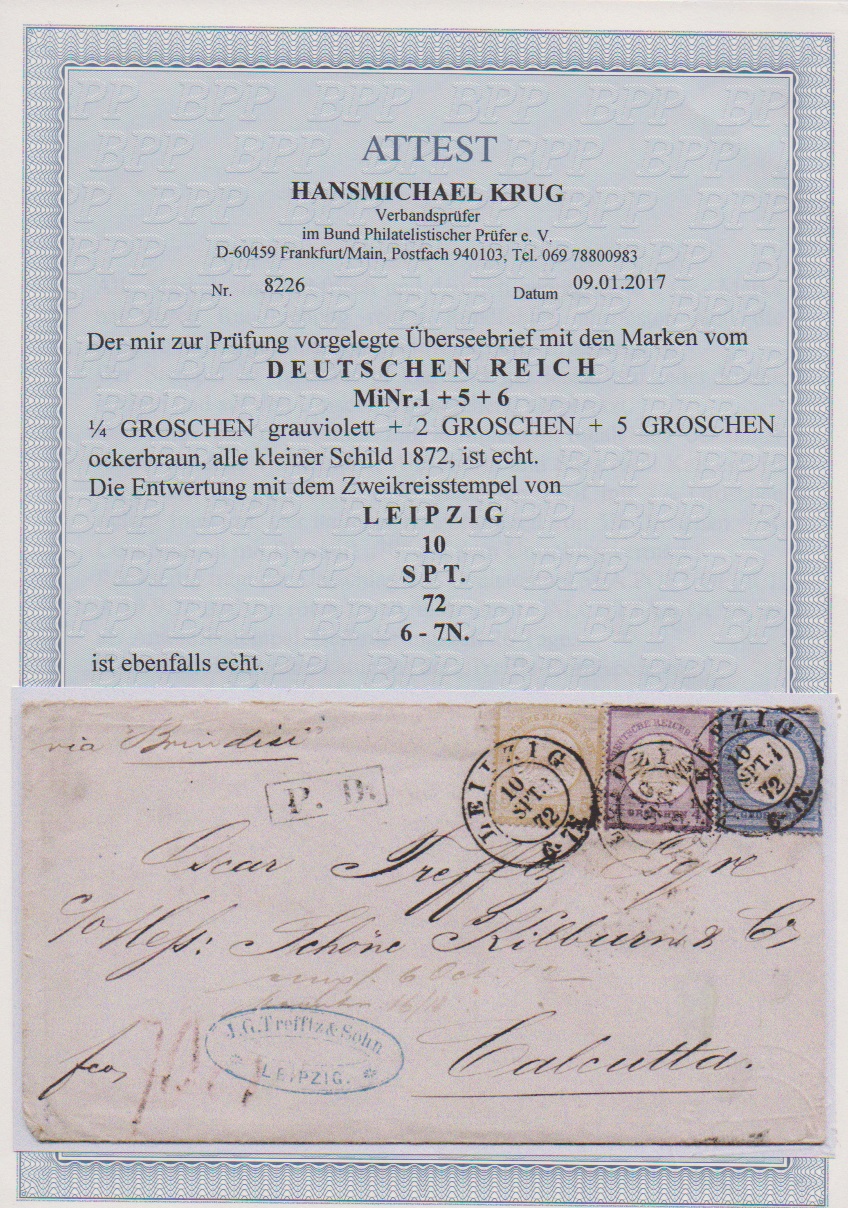 ATTEST
HANSMICHAEL KRUG
Verbandsprüfer
im Bund Philatelistischer Prüfer e. V.
D-60459 Frankfurt/Main, Postfach 940103, Tel. 069 78800983
Nr. 8226 Datum 09.01.2017
Der mir zur Prüfung vorgelegte Überseebrief mit den Marken vom
DEUTSCHEN REICH
MiNr.1 + 5 + 6
¼ GROSCHEN grauviolett + 2 GROSCHEN + 5 GROSCHEN
ockerbraun, alle kleiner Schild 1872, ist echt.
Die Entwertung mit dem Zweikreisstempel von
LEIPZIG
10
SPT.
72
6 - 7N.
ist ebenfalls echt.
via Brindisi
P. D.
LEIPZIG
10
SPT.
72
6-7N.
DEUTSCHE REICHS
GROSCHEN
LEIPZIG
10
SPT.
72
6-7N.
Oscar Trefftz Esqre
c/o Mess: Schöne Kilburn & Co
6 Oct. 72
J.G.Trefftz & Sohn
LEIPZIG.
fco,
Calcutta.